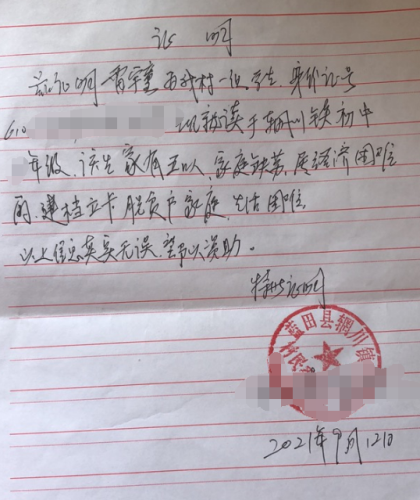 证明
兹证明 我村一组 学生 身份证号
610 现就读于辋川镇初中
年级,该生家有五口人,家庭缺劳,属经济困难
的,建档立卡脱贫户家庭,生活困难。
以上信息真实无误,望予以资助。
特此证明
蓝田县辋川镇
村民
2021年9月12日